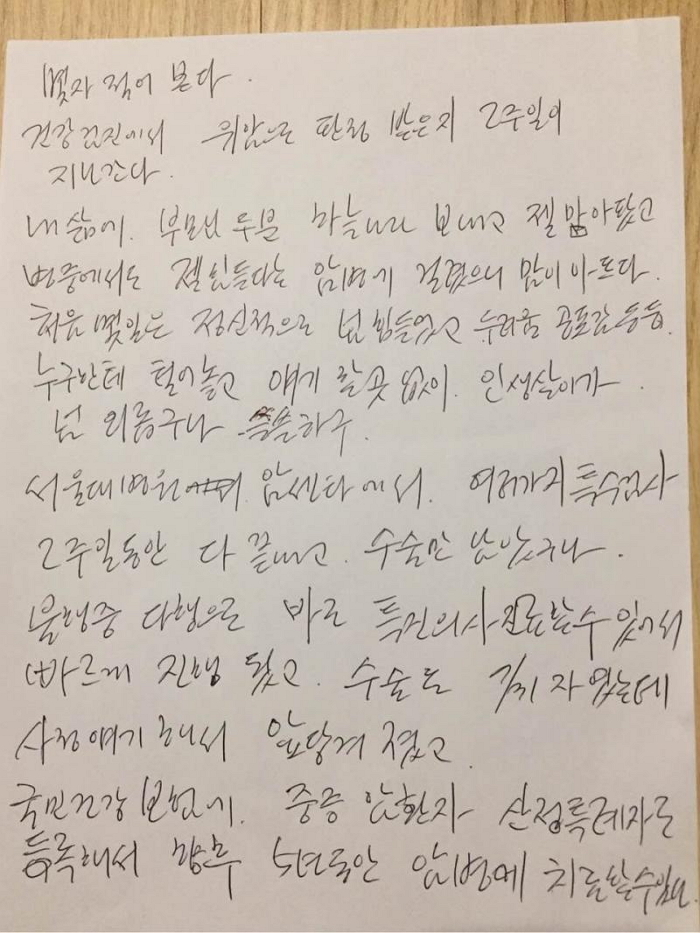 몇자 적어 본다.
건강검진에서 위암으로 판정 받은지 2주일이
지나간다.
내 삶에. 부모님 두분 하늘나라 보내고 젤 맘 아팠고
병중에서도 젤 힘들다는 암병에 걸렸으니 맘이 아프다.
처음 몇일은 정신적으로 넘 힘들었고 두려움 공포감 등등.
누구한테 털어놓고 얘기 할곳 없이. 인생살이가.
넘 외롭구나 쓸쓸하구.
서울대병원 암센타에서. 여러가지 특수검사
2주일동안 다 끝내고. 수술만 남았구나.
불행중 다행으로 바로 특진의사 진료할수 있어서
빠르게 진행 됐고. 수술도 7/31 자 였는데
사정얘기 해서 앞당겨 졌고.
국민건강 보험에. 중증 암환자 산정특례자로
등록해서 향후 5년동안 암병에 치료할수있다.